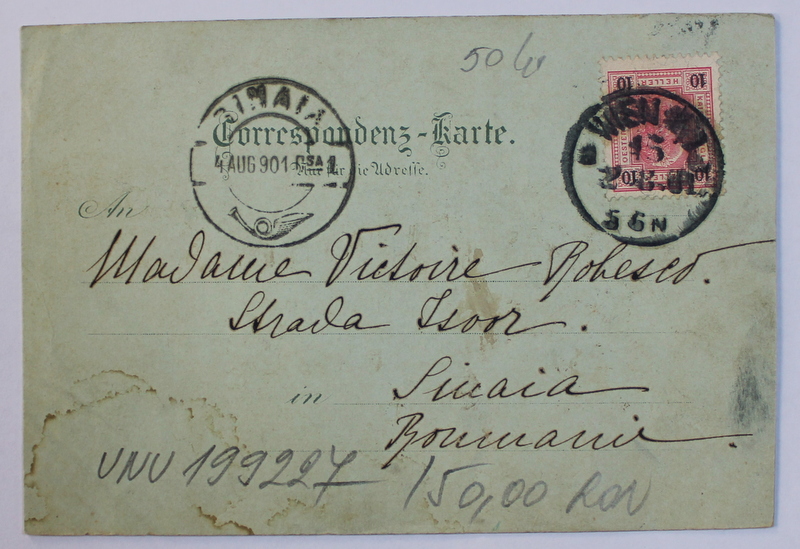 50 lei
SINAIA
4 AUG 901
Correspondenz-Karte.
Nur für die Adresse.
10 HELLER 10
WIEN
15
56N
An
Madame Victoire Robesco.
Strada Isvor.
in Sinaia
Roumanie.
UNU 199227
150,00 RON